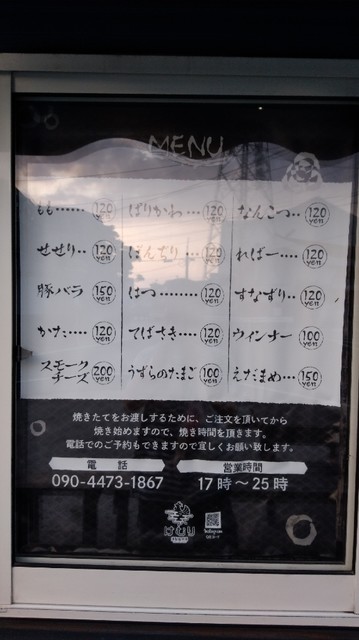 MENU
もも……120yen
せせり‥120yen
豚バラ 150yen
かた……120yen
スモークチーズ 200yen
ぱりかわ…120yen
ぼんぢり…120yen
はつ………120yen
てばさき…120yen
うずらのたまご 100yen
なんこつ‥120yen
ればー…120yen
すなずり‥120yen
ウィンナー 100yen
えだまめ…150yen
焼きたてをお渡しするために、ご注文を頂いてから
焼き始めますので、焼き時間を頂きます。
電話でのご予約もできますので宜しくお願い致します。
電話
090-4473-1867
営業時間
17時～25時
けむり
Instagram